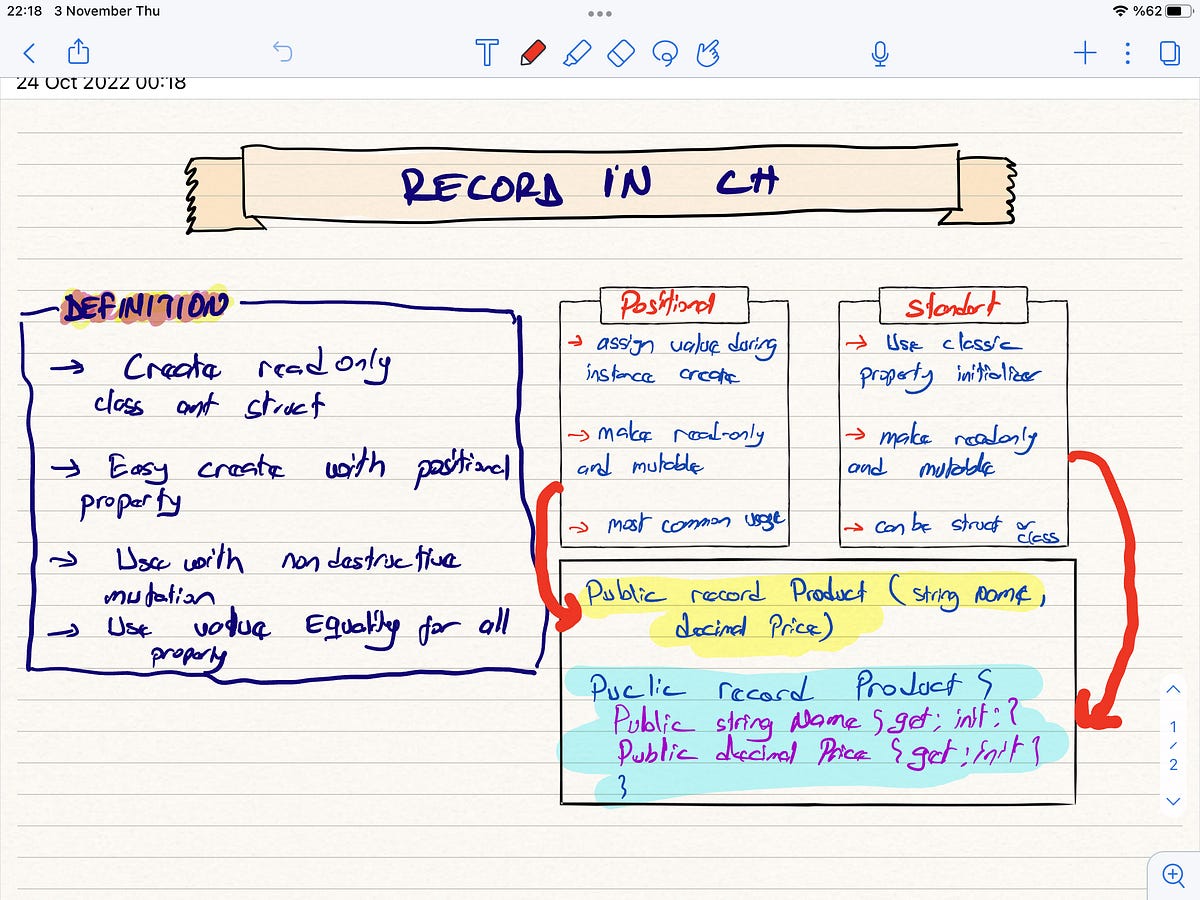 22:18 3 November Thu
%62
24 Oct 2022 00:18
RECORD IN C#
DEFINITION
→ Create read only
class ant struct
→ Easy create with positional
property
→ Use with nondestructive
mutation
→ Use value Equality for all
property
Positional
→ assign value during
instance create
→ make read-only
and mutable
→ most common usage
Standart
→ Use classic
property initializer
→ make readonly
and mutable
→ can be struct or
class
Public record Product (string Name,
decimal Price)
Puclic record Product {
Public string Name { get; init; }
Public decimal Price { get; init }
}
1
/
2